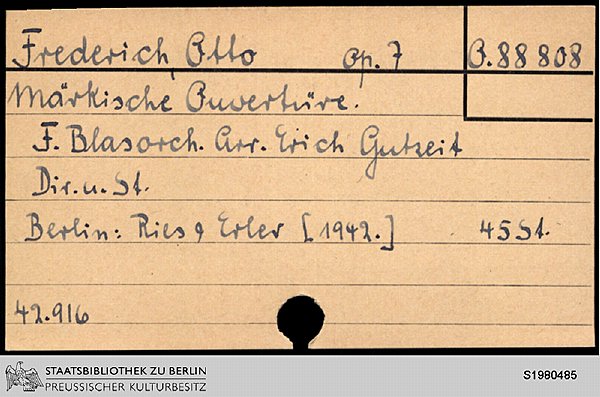 Frederich, Otto Op. 7 O. 88 808
Märkische Ouvertüre.
F. Blasorch. Arr. Erich Gutzeit
Dir. u. St.
Berlin: Ries & Erler [1942.] 45 St.
42.916
STAATSBIBLIOTHEK ZU BERLIN
PREUSSISCHER KULTURBESITZ
S1980485